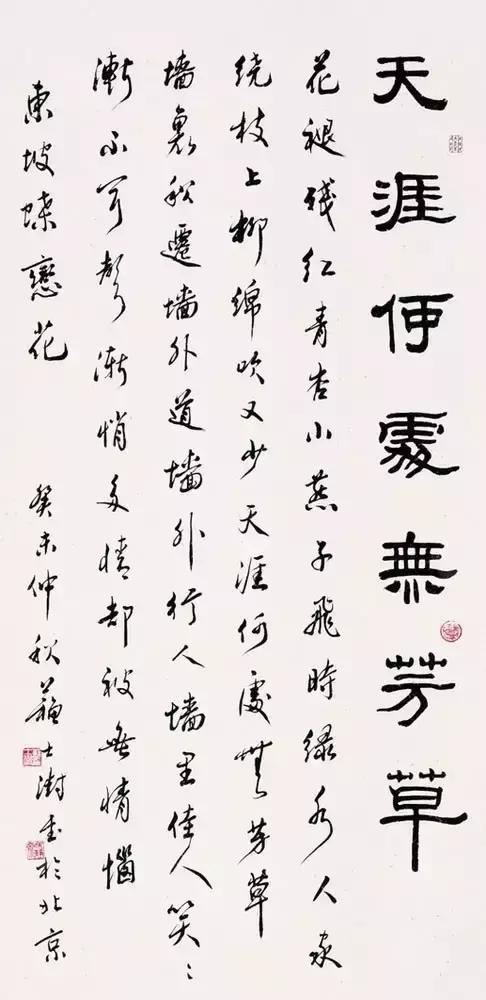 天涯何處無芳草
花褪殘紅青杏小燕子飛時緑水人家
繞枝上柳綿吹又少天涯何處無芳草
墙裏秋遷墙外道墙外行人墙里佳人笑〻
漸不聞聲漸悄多情却被無情惱
東坡蝶戀花 癸未仲秋蘇士澍書於北京